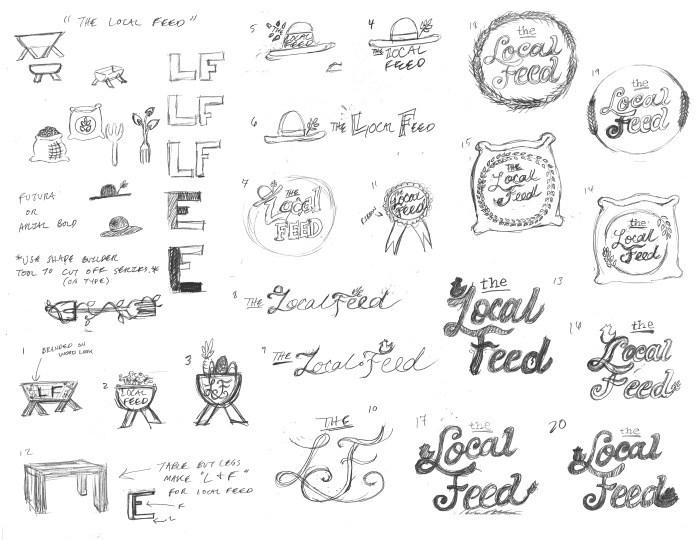 "THE LOCAL FEED"
LF
LF
LF
E
E
FUTURA
OR
ARIAL BOLD
*USE SHAPE BUILDER
TOOL TO CUT OFF SERIFS.*
(ON TYPE)
1
BRANDED ON
WOOD LOOK
LF
2
LOCAL
FEED
3
LF
12
TABLE BUT LEGS
MAKE "L + F"
FOR LOCAL FEED
E
F
L
5
THE
LOCAL
FEED
4
THE LOCAL
FEED
6
THE Local Feed
7
THE
Local
FEED
11
RIBBON
the
Local
Feed
8
THE Local Feed
9
THE Local Feed
10
THE
LF
18
the
Local
Feed
19
the
Local
Feed
15
THE
Local
Feed
14
the
Local
Feed
13
the
Local
Feed
16
the
Local
Feed
17
the
Local
Feed
20
the
Local
Feed